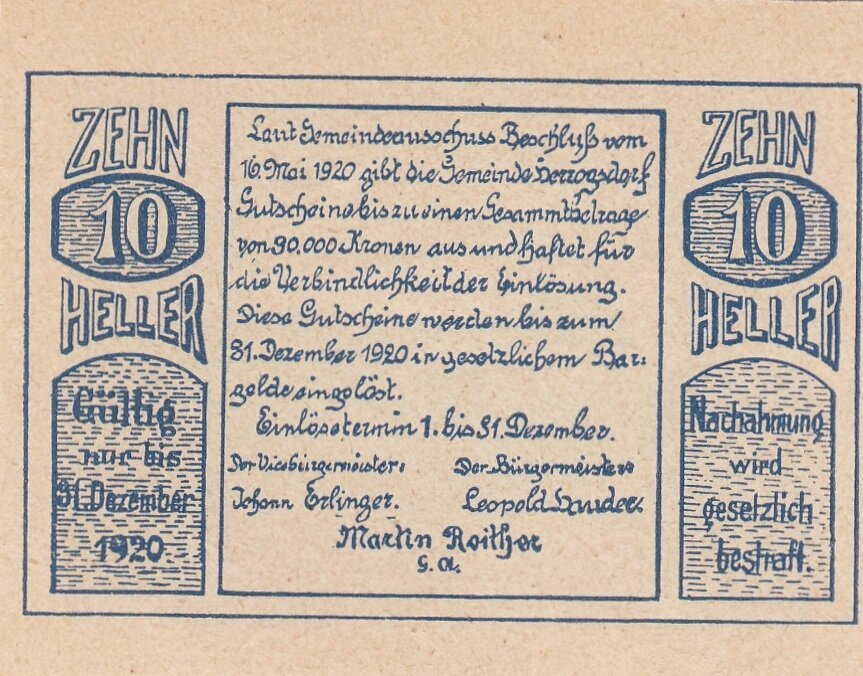 ZEHN
10
HELLER
Gültig
nur bis
31. Dezember
1920.
Laut Gemeindeausschuss Beschluß vom
16. Mai 1920 gibt die Gemeinde Herzogsdorf
Gutscheine bis zu einen Gesammtbetrage
von 30.000 Kronen aus und haftet für
die Verbindlichkeit der Einlösung.
Diese Gutscheine werden bis zum
31. Dezember 1920 in gesetzlichem Bar:
gelde eingelöst.
Einlösetermin 1. bis 31. Dezember.
Der Vicebürgermeister:
Johann Erlinger.
Der Bürgermeister
Leopold
Martin Reither
G.R.
ZEHN
10
HELLER
Nachahmung
wird
gesetzlich
bestraft.